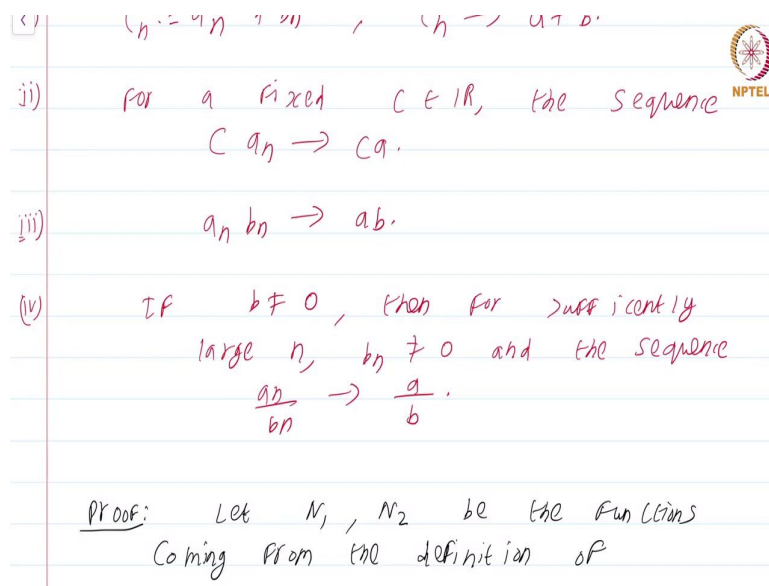 NPTEL
ii) For a Fixed C ∈ IR, the sequence
C an → ca.
iii) an bn → ab.
(iv) IF b ≠ 0, then for sufficently
large n, bn ≠ 0 and the sequence
an/bn → a/b.
Proof: Let N1, N2 be the Functions
Coming From the definition of